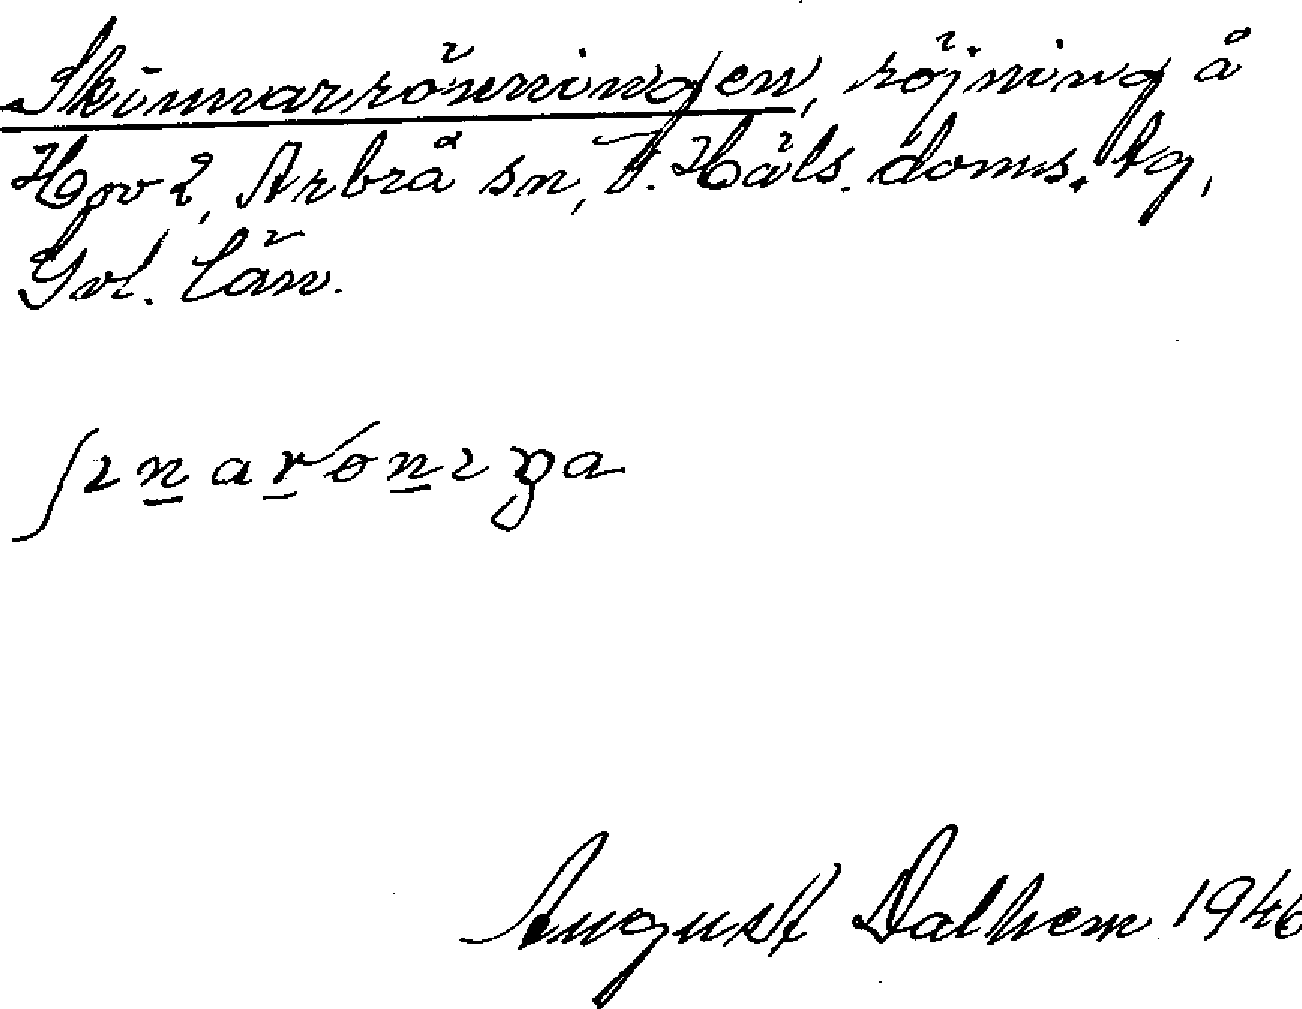 Skinnarrönningen, röjning å
Hov 2, Arbrå sn, V. Häls. doms. tg,
Gvl. län.
August Dalhem 1946